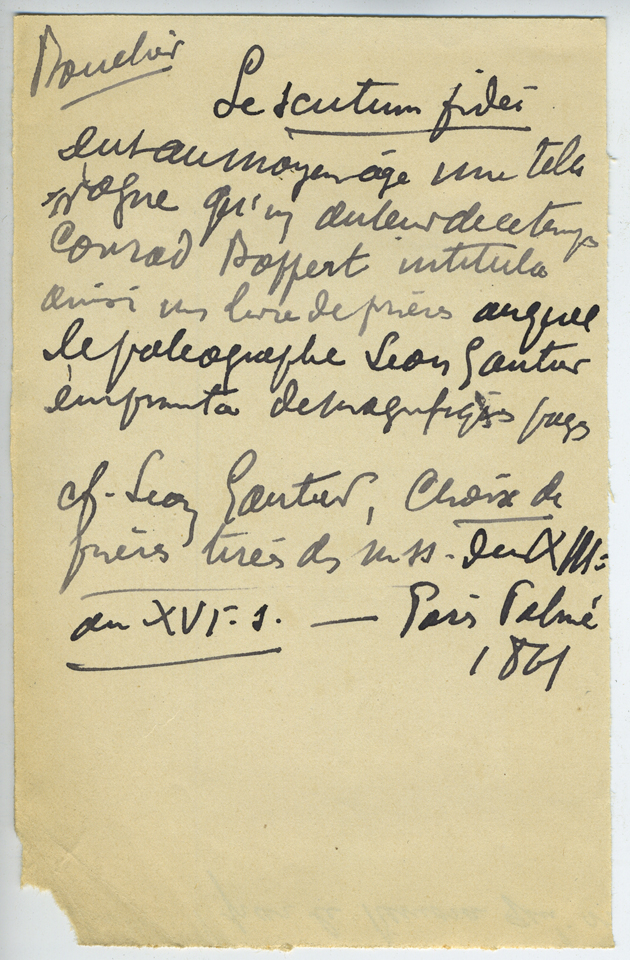 Bouclier
Le scutum fidei
eut au moyen âge une telle
vogue qu'un auteur de ce temps
Conrad Boppert intitula
ainsi un livre de prières auquel
le paléographe Léon Gautier
emprunta de magnifiques pages
cf. Léon Gautier, Choix de
prières tirés des mss. du XIII=
au XVI= s. — Paris Palmé
1861